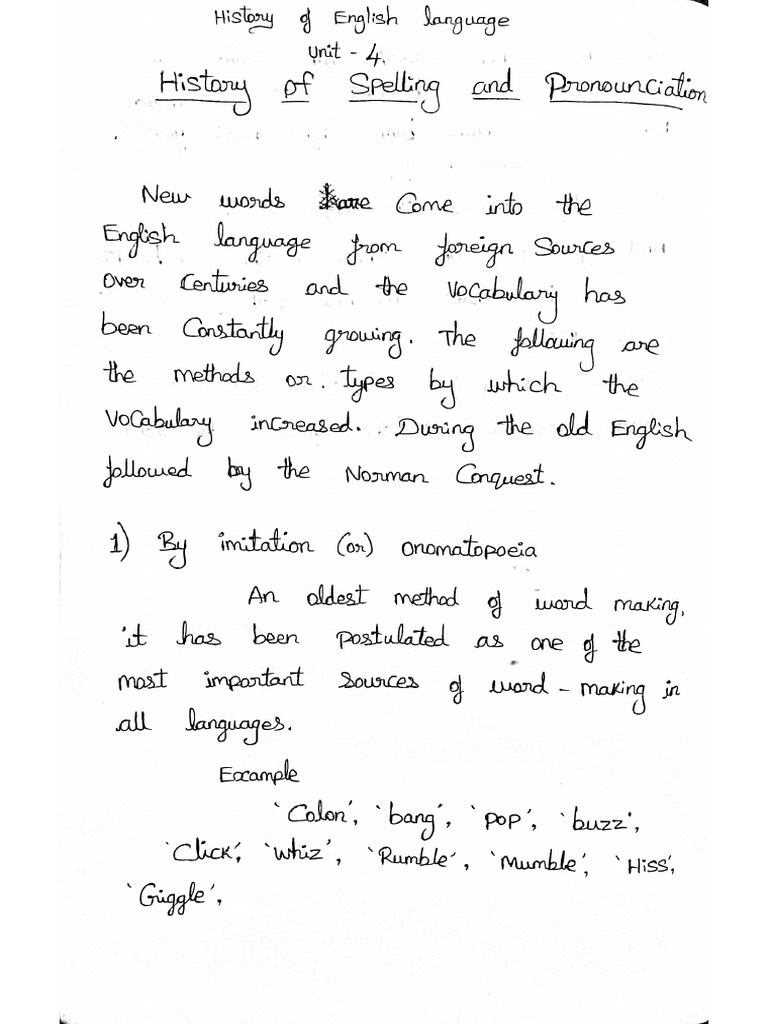 History of English language
Unit - 4.
History of Spelling and Pronounciation
New words are Come into the
English language from foreign Sources
over Centuries and the Vocabulary has
been Constantly growing. The following are
the methods or types by which the
Vocabulary increased. During the old English
followed by the Norman Conquest.
1) By imitation (or) onomatopoeia
An oldest method of word making,
it has been postulated as one of the
most important sources of word - making in
all languages.
Example
'Colon', 'bang', 'pop', 'buzz',
'Click', 'whiz', 'Rumble', 'Mumble', 'Hiss',
'Griggle',